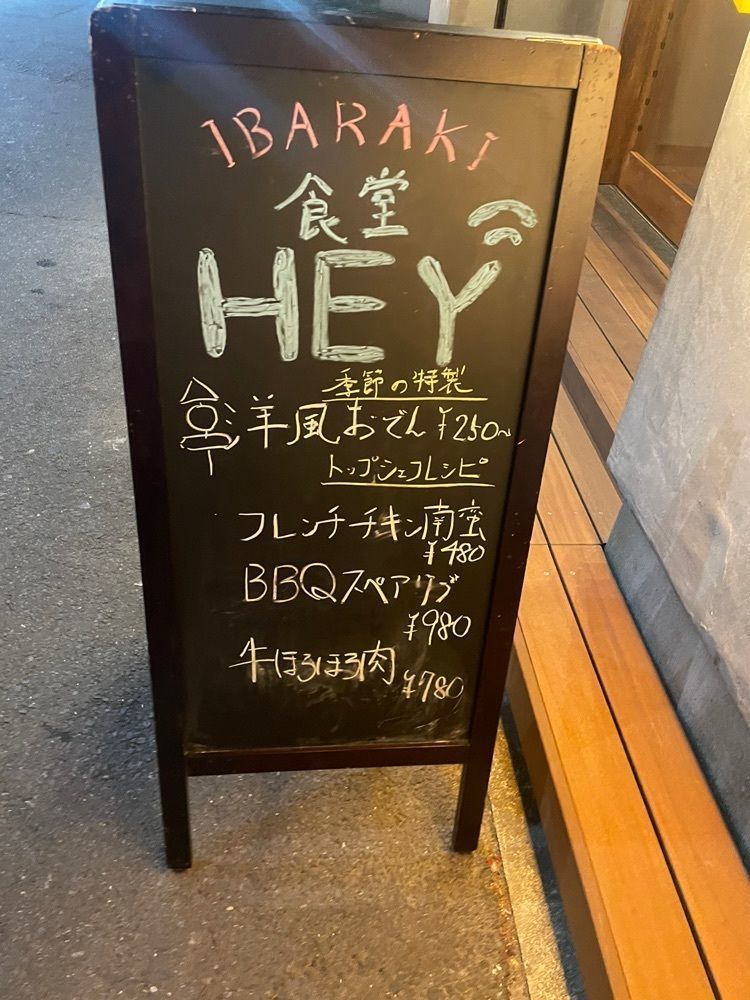 IBARAKI
食堂
HEY
季節の特製
洋風おでん ¥250~
トップシェフレシピ
フレンチチキン南蛮
¥480
BBQスペアリブ
¥980
牛ほろほろ肉
¥780